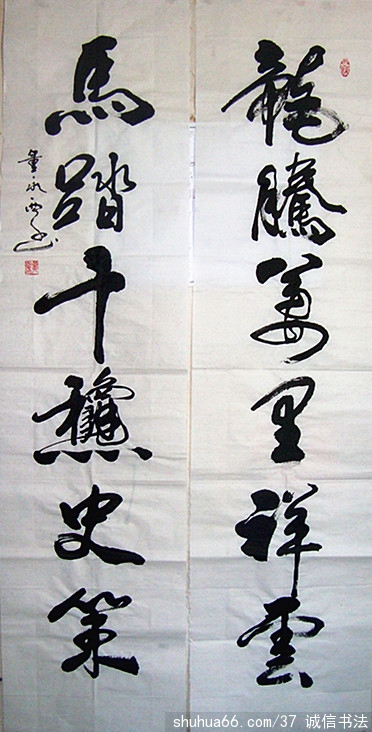 龍騰萬里祥雲
馬踏千龝史策
shuhua66.com/37 诚信书法